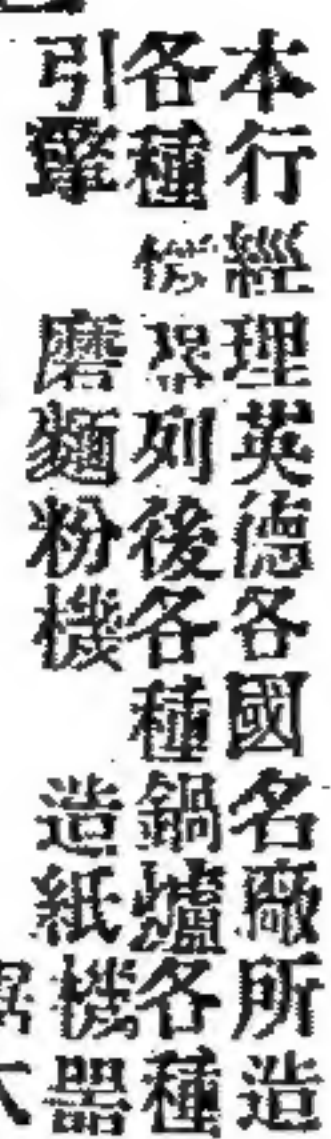 本行經理英德各國名廠所造
各種機器列後各種鍋爐各種
引擎 磨麵粉機 造紙機器